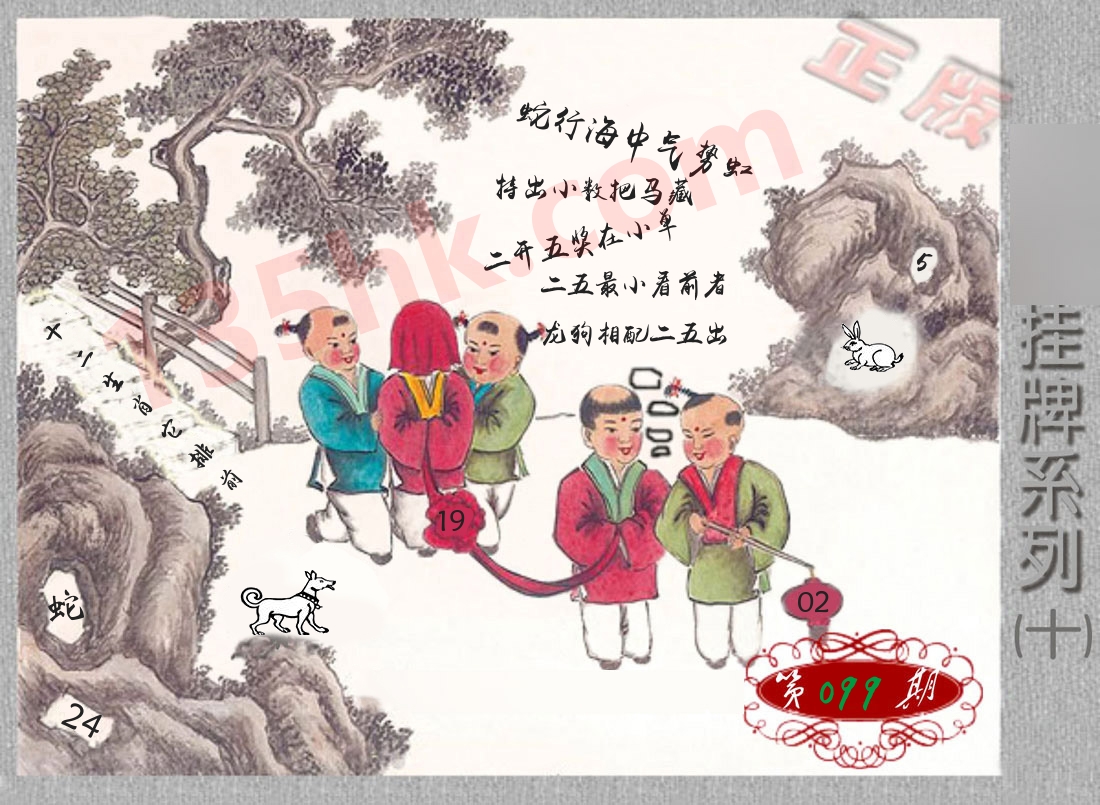 正版
蛇行海中气势虹
持出小数把马藏
二开五奖在小单
二五最小看前者
龙狗相配二五出
135hk.com
5
十二生肖它排前
19
02
蛇
24
第099期
挂牌系列(十)